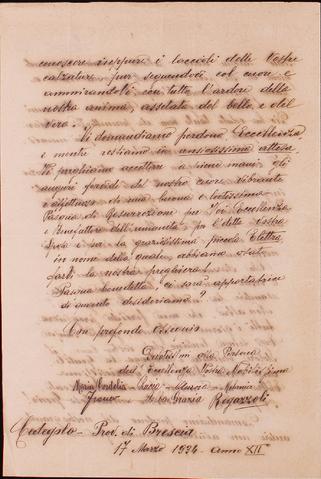 conoscere neppure i laccioli delle Vostre
calzature pur seguendovi col cuore e
ammirandoVi con tutto l'ardore della
nostra anima, assetata del bello e del
vero!
Vi domandiamo perdono Eccellenza
e mentre restiamo in ansiosissima attesa
Vi preghiamo accettare a piene mani gli
auguri fervidi del nostro cuore vibrante
di una buona e lietissima
Pasqua di Resurrezione per Voi Eccellenza
e Benefattore dell'umanità, per l'eletta Vostra
Sposa e per la graziosissima piccola Elettra
in nome della quale abbiamo osato
farVi la nostra preghiera!
Pasqua benedetta, ci sarà apportatrice
di quanto desideriamo?
Con profondo ossequio
Devotissimi alla Persona
dell'Eccellenza Vostra
Maria Cordelia Lucia
Franco della Grazia Rigazzoli
Prov. di Brescia
17 Marzo 1934 - Anno XII